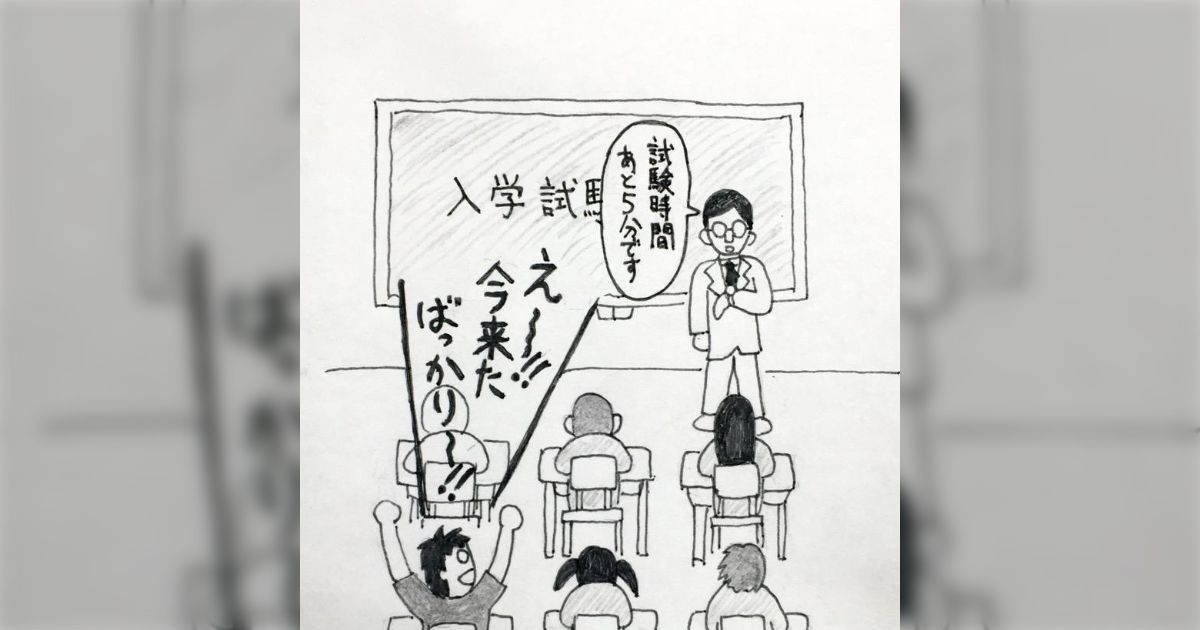 入学試験
試験時間
あと5分です
え〜!!
今来た
ばっかり〜!!